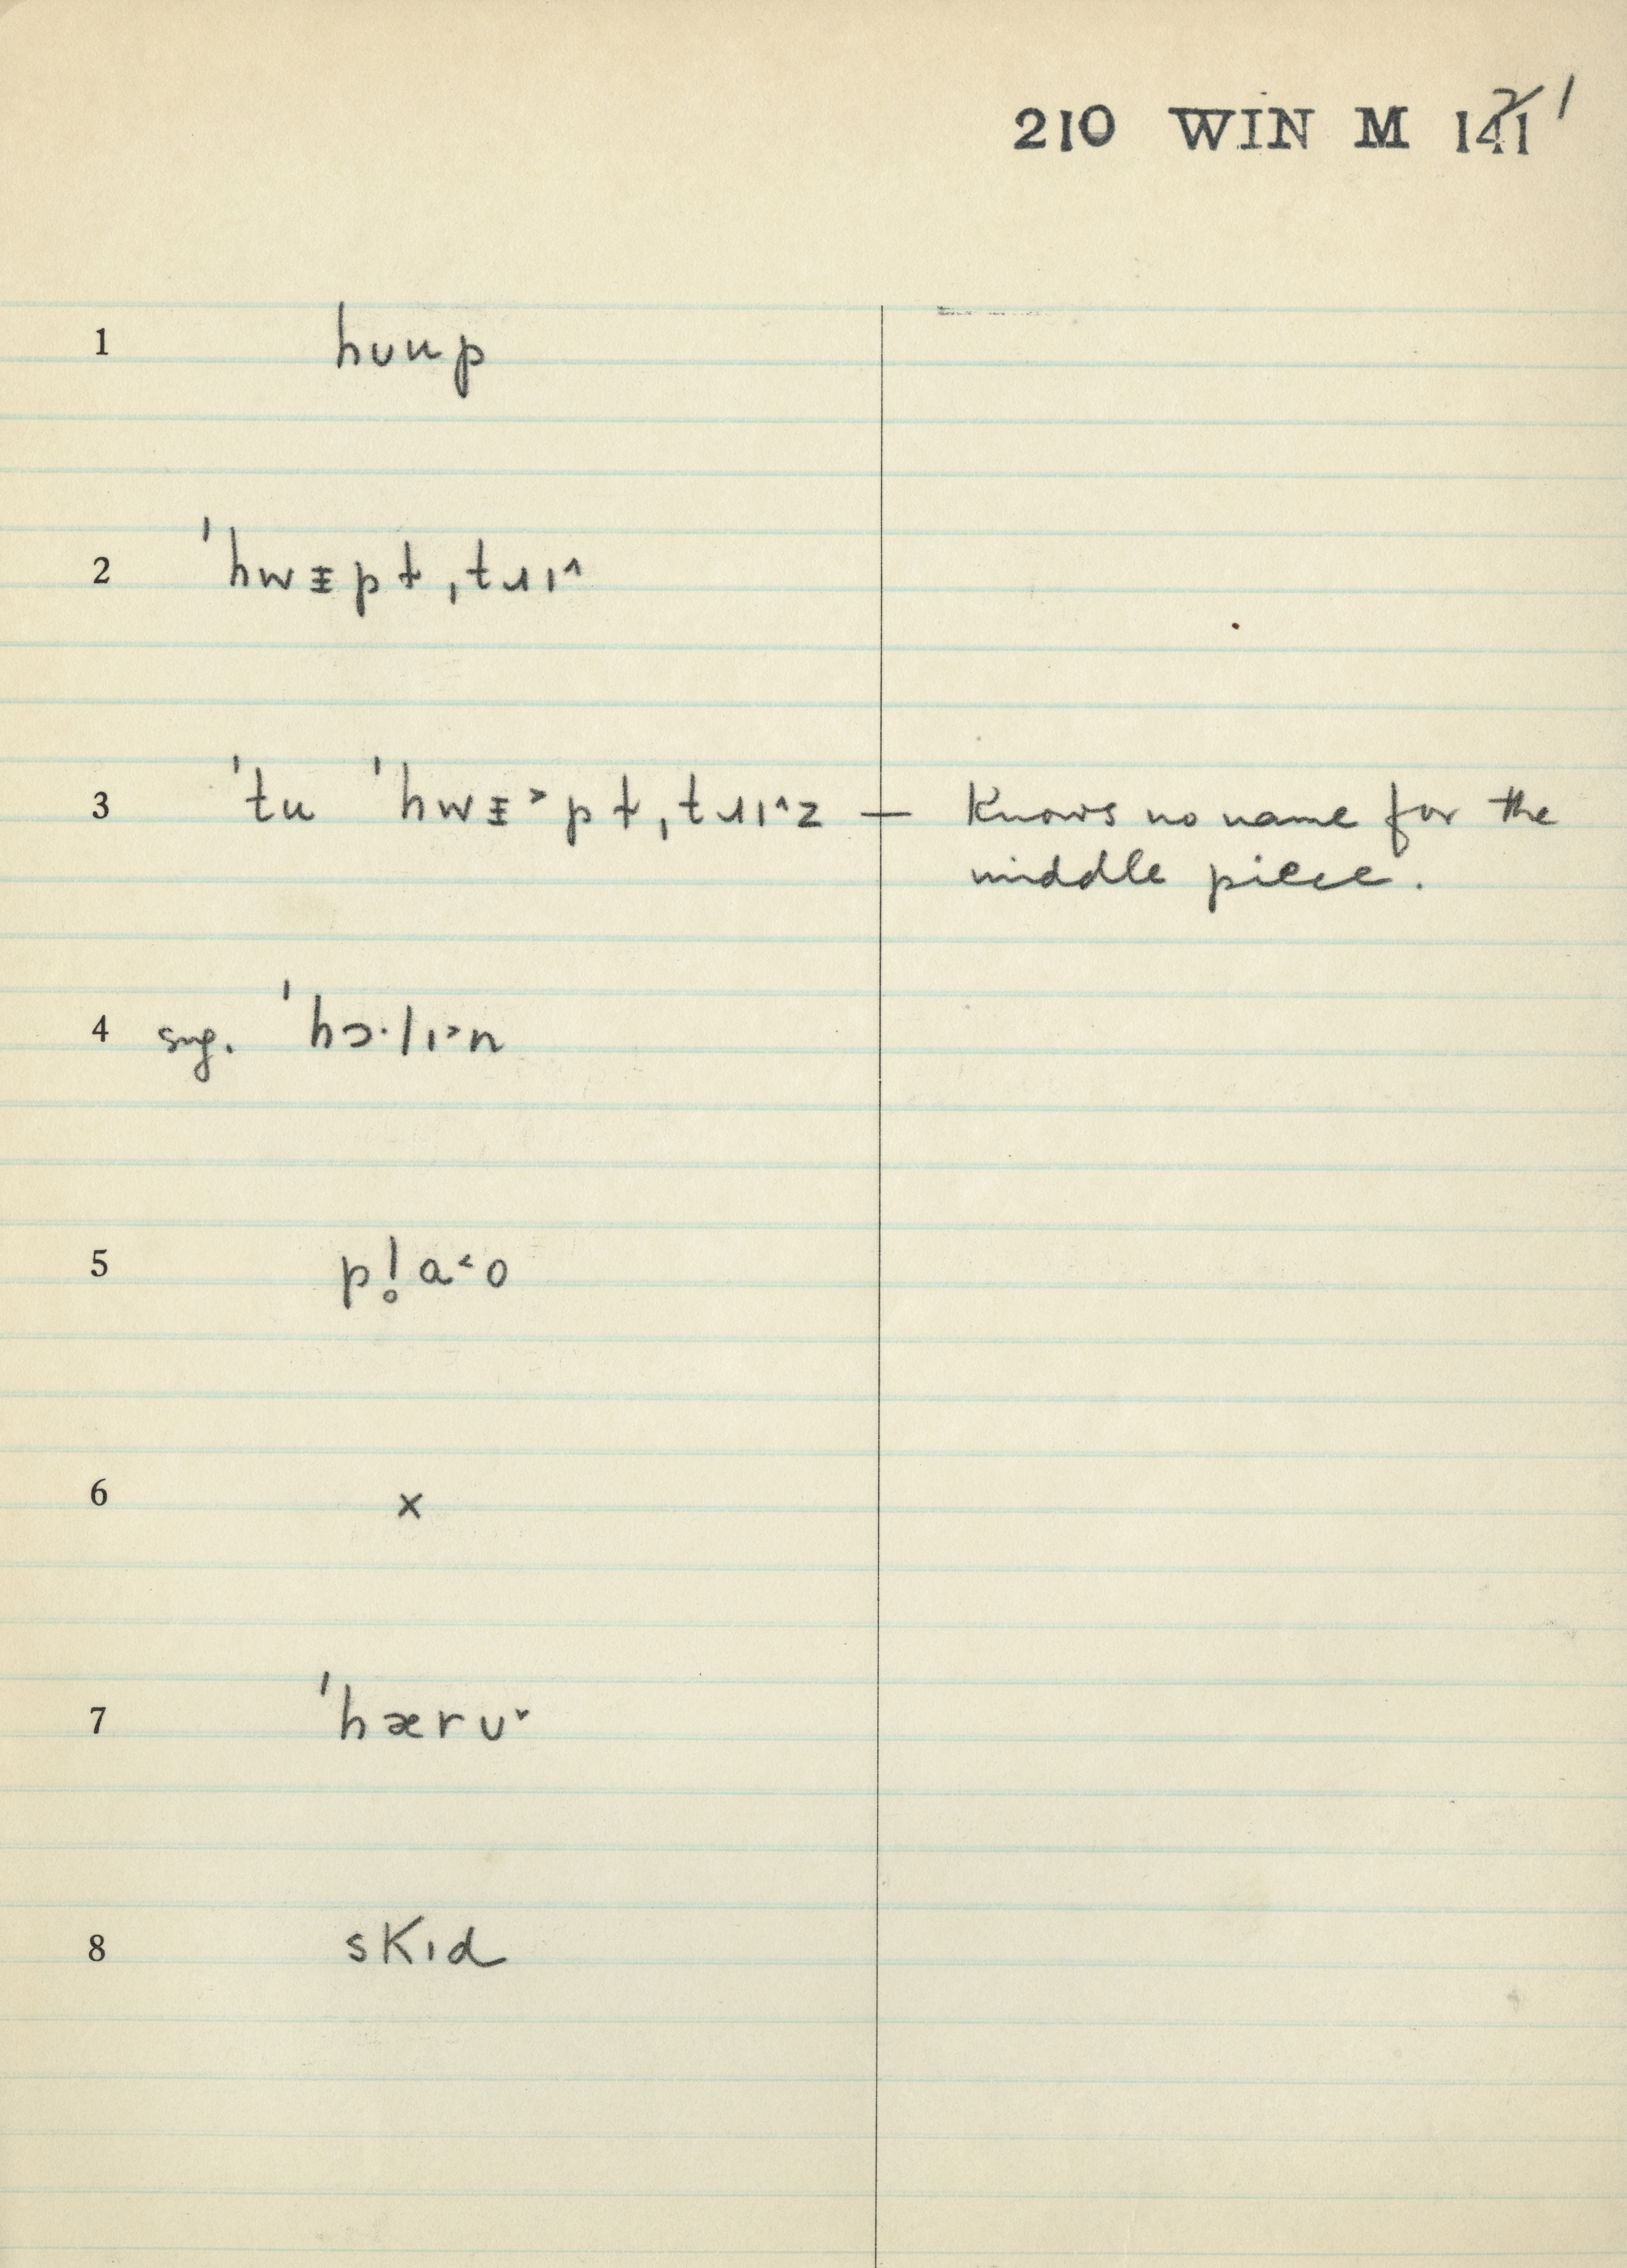 210 WIN M 121
1 hʊup
2 ˈhwᵻpt̵ˌtɹɪ^
3 ˈtu ˈhwᵻ˃pt̵ˌtɹɪ^z — Knows no name for the
middle piece.
4 sug. ˈhɔ·lɪ˃n
5 pl̥a˂o
6 ×
7 ˈhærʊ˅
8 skɪd